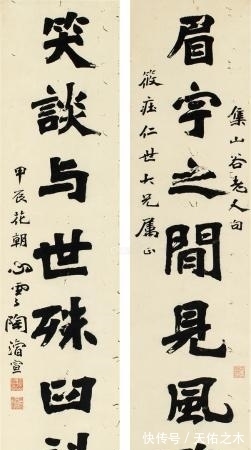 集山谷老人句
眉宇之閒見風
筱仁世大兄属正
笑談与世殊臼
甲辰花朝心雲陶濬宣
快传号/天佑之木